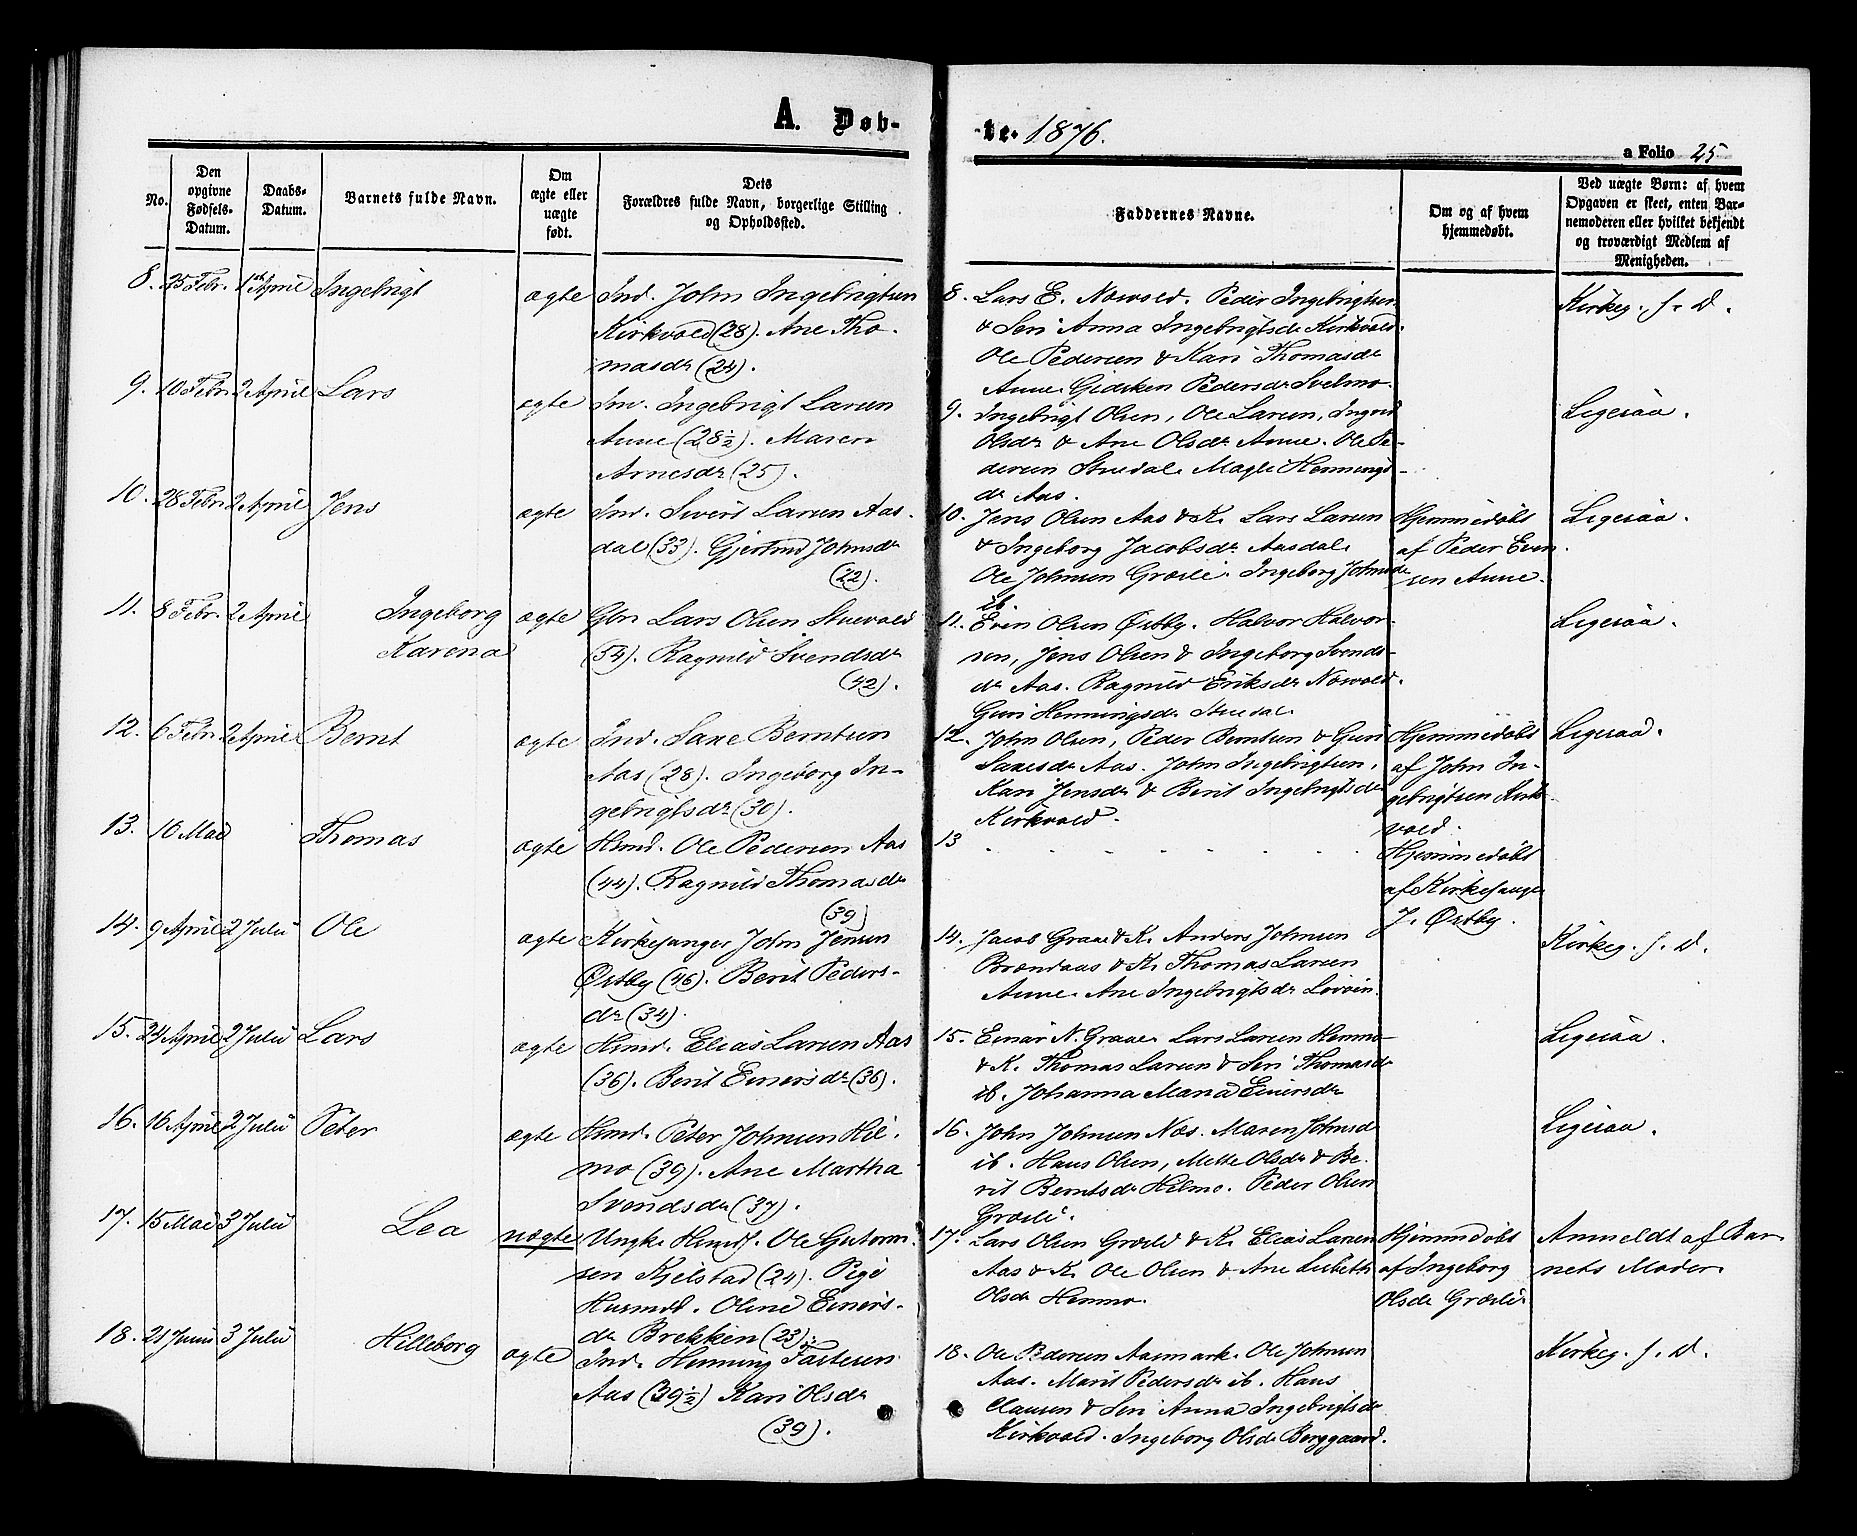 A. Døb-
te. 1876.
a Folio 25
No.
Den opgivne Fødsels-Datum.
Daabs-Datum.
Barnets fulde Navn.
Om ægte eller uægte født.
Dets Forældres fulde Navn, borgerlige Stilling og Opholdssted.
Faddernes Navne.
Om og af hvem hjemmedøbt.
Ved uægte Børn: af hvem Opgaven er skeet, enten Barnemoderen eller hvilket bekjendt og troværdigt Medlem af Menigheden.
8. 25 Febr. 1ste April Ingebrigt ægte Ind. John Ingebrigtsen
Kirkvold (28). Ane Tho-
masdr (24).
8. Lars E. Nowold. Peder Ingebrigtsen
& Seri Anna Ingebrigtsdr Kirkvold.
Ole Pedersen & Kari Thomasdr
Aune. Gidsken Pedersdr Svelmo.
Kirkeg. f. D.
9. 10 Febr. 2 April Lars ægte Ind. Ingebrigt Larsen
Aune (28½). Maren
Arnesdr (25).
9. Ingebrigt Olsen, Ole Larsen, Ingrid
Olsdr & Ane Olsdr Aune. Ole Pe-
dersen Stuedal. Magli Hennings-
dr Aas.
Ligesaa.
10. 28 Febr. 2 April Jens ægte Ind. Sivert Larsen Aas-
dal (33). Gjertrud Johnsdr
(22).
10. Jens Olsen Aas & K. Lars Larsen
& Ingeborg Jacobsdr Aasdal.
Ole Johnsen Græsli. Ingeborg Johnsdr
ib.
Hjemmedøbt
af Peder Even-
sen Aune.
Ligesaa.
11. 8 Febr. 2 April Ingeborg
Karena
ægte Gbr. Lars Olsen Stuevold
(54). Ragnild Svendsdr
(42).
11. Even Olsen Østby. Halvor Halvor-
sen, Jens Olsen & Ingeborg Svends-
dr Aas. Ragnild Eriksdr Nowold.
Guri Henningsdr Stuedal.
Ligesaa.
12. 6 Febr. 2 April Bernt ægte Ind. Saxe Berntsen
Aas (28). Ingeborg In-
gebrigtsdr (30).
12. John Olsen, Peder Berntsen & Guri
Saxesdr Aas. John Ingebrigtsen,
Kari Jensdr & Berit Ingebrigtsdr
Kirkvold.
Hjemmedøbt
af John In-
gebrigtsen Kirk-
vold.
Ligesaa.
13. 16 Mai Thomas ægte Hsmd. Ole Pedersen Aas
(44). Ragnild Thomasdr
(39)
13 . . . . . . .
Hjemmedøbt
af Kirkesanger
J. Østby.
14. 9 April 2 Juli Ole ægte Kirkesanger John Jensen
Østby (46). Berit Peders-
dr (34).
14. Jacob Graae & K. Anders Johnsen
Brændaas & K. Thomas Larsen
Aune. Ane Ingebrigtsdr Løvøin.
Kirkeg. f. D.
15. 24 April 2 Juli Lars ægte Hsmd. Elias Larsen Aas
(36). Berit Einersdr (36).
15. Einar N. Graae. Lars Larsen Hemmo
& K. Thomas Larsen & Seri Thomasdr
ib. Johanna Maria Einersdr
Ligesaa.
16. 16 April 2 Juli Peter ægte Hsmd. Peter Johnsen Hil-
mo (39). Ane Martha
Svendsdr (37).
16. John Johnsen Næs. Maren Johnsdr
ib. Hans Olsen, Mette Olsdr & Be-
rit Berntsdr Hilmo. Peder Olsen
Græsli.
Ligesaa.
17. 15 Mai 3 Juli Lea uægte Ungk. Hsmd. Ole Guttorm-
sen Kjelstad (24). Pige
Husmd. Oline Einers-
dr Brekken (23).
17. Lars Olsen Græsli & K. Elias Larsen
Aas & K. Ole Olsen & Ane Lisbeth
Olsdr Hemmo.
Hjemmedøbt
af Ingeborg
Olsdr Græsli.
Anmeldt af Bar-
nets Moder.
18. 21 Juni 3 Juli Hilleborg ægte Ind. Henning Fastesen
Aas (39½) Kari Olsdr
(39).
18. Ole Pedersen Aasmark. Ole Johnsen
Aas. Marit Pedersdr ib. Hans
Clausen & Seri Anna Ingebrigtsdr
Kirkvold. Ingeborg Olsdr Berggaard.
Kirkeg. f. D.